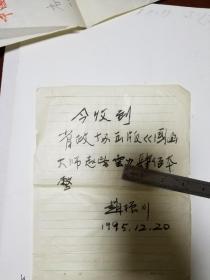 今收到
省政协出版《国画
大师赵望云》肆佰本
整
赵振川
1995.12.20